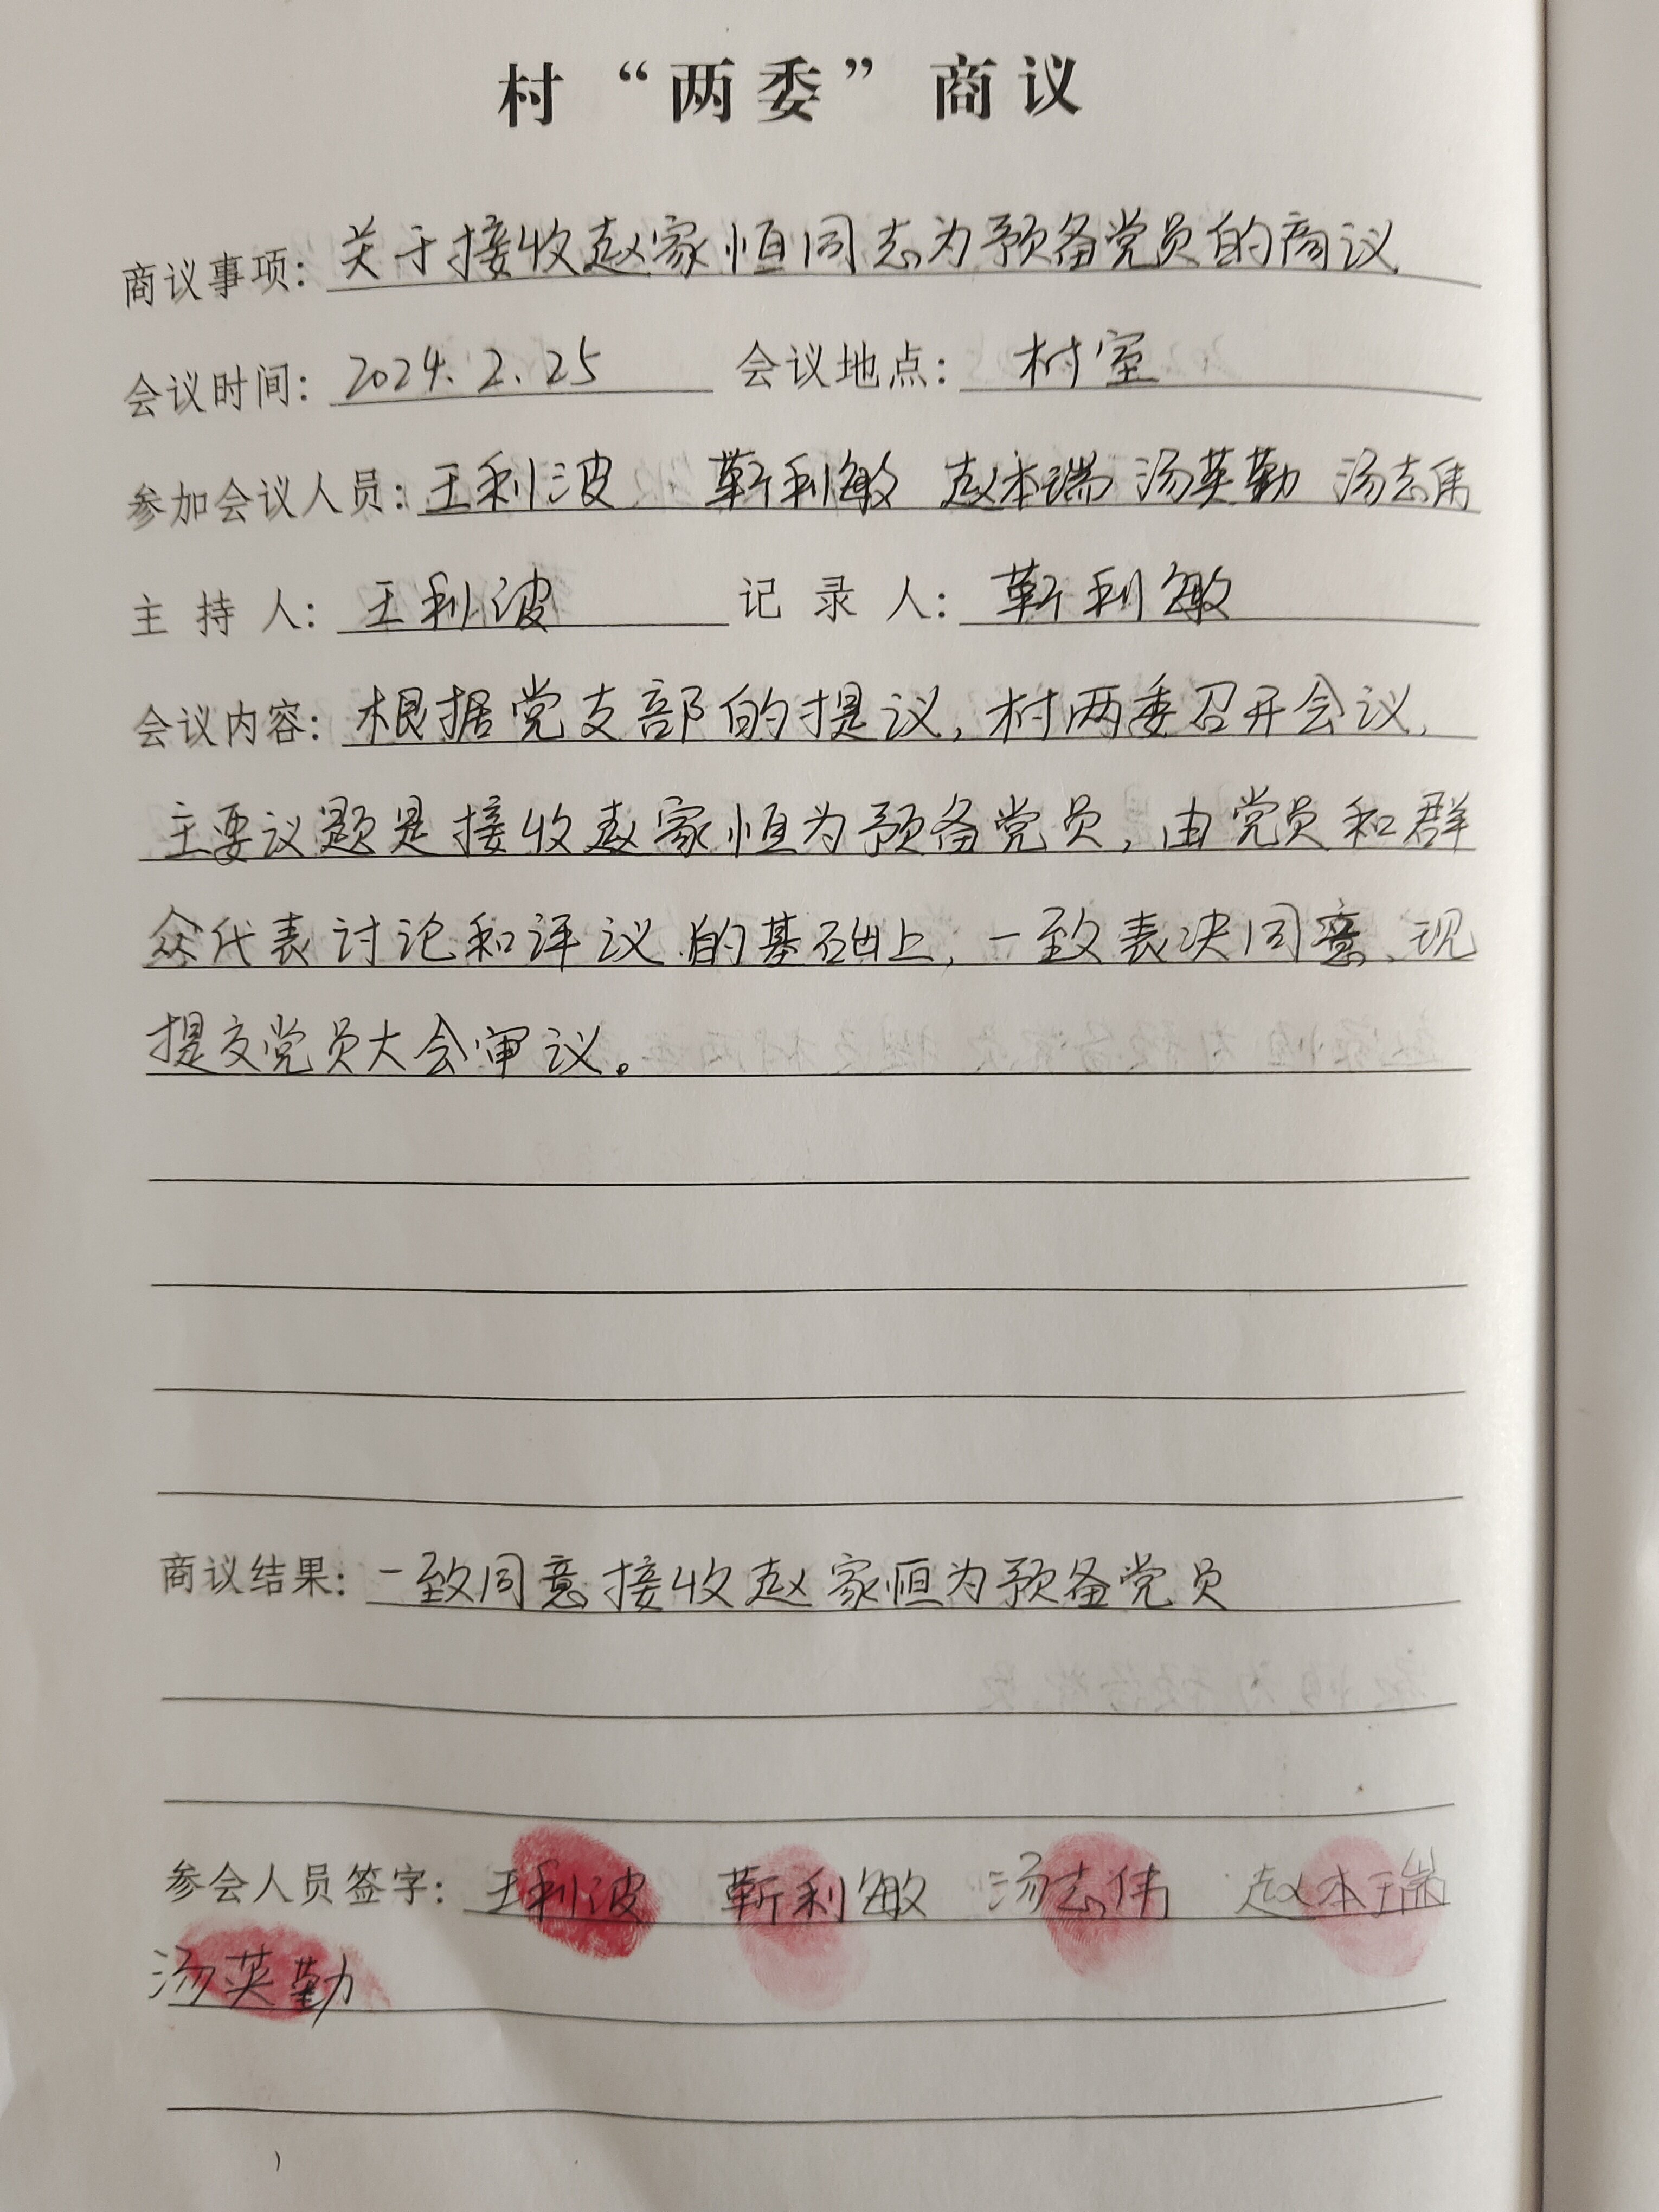 村“两委”商议
商议事项：关于接收赵家恒同志为预备党员的商议
会议时间：2024.2.25 会议地点：村室
参加会议人员：王利波 靳利敏 赵本端 汤英勤 汤志伟
主持人：王利波 记录人：靳利敏
会议内容：根据党支部的提议，村两委召开会议，
主要议题是接收赵家恒为预备党员，由党员和群
众代表讨论和评议的基础上，一致表决同意、现
提交党员大会审议。
商议结果：一致同意接收赵家恒为预备党员
参会人员签字：王利波 靳利敏 汤志伟 赵本瑞
汤英勤